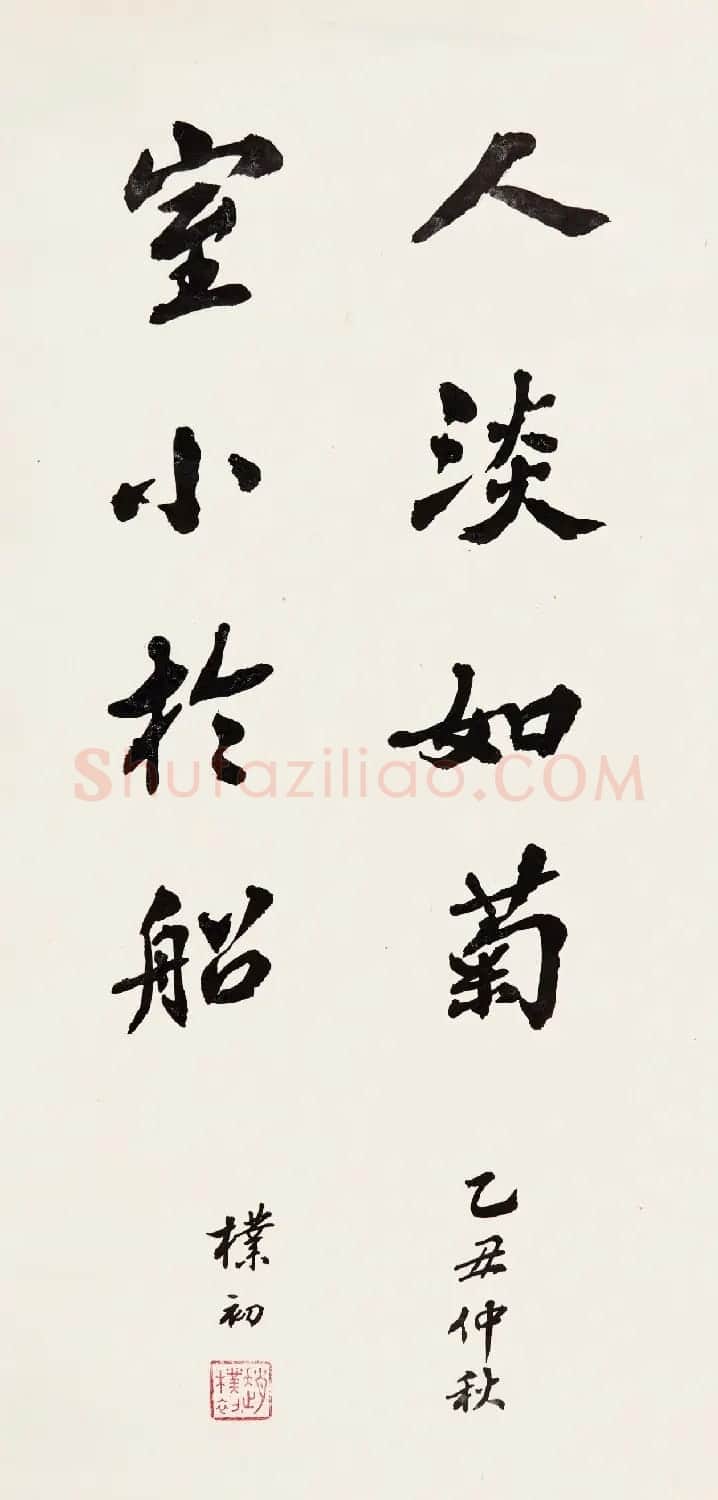 人淡如菊
室小於船
乙丑仲秋
樸初
趙樸初
Shufaziliao.COM